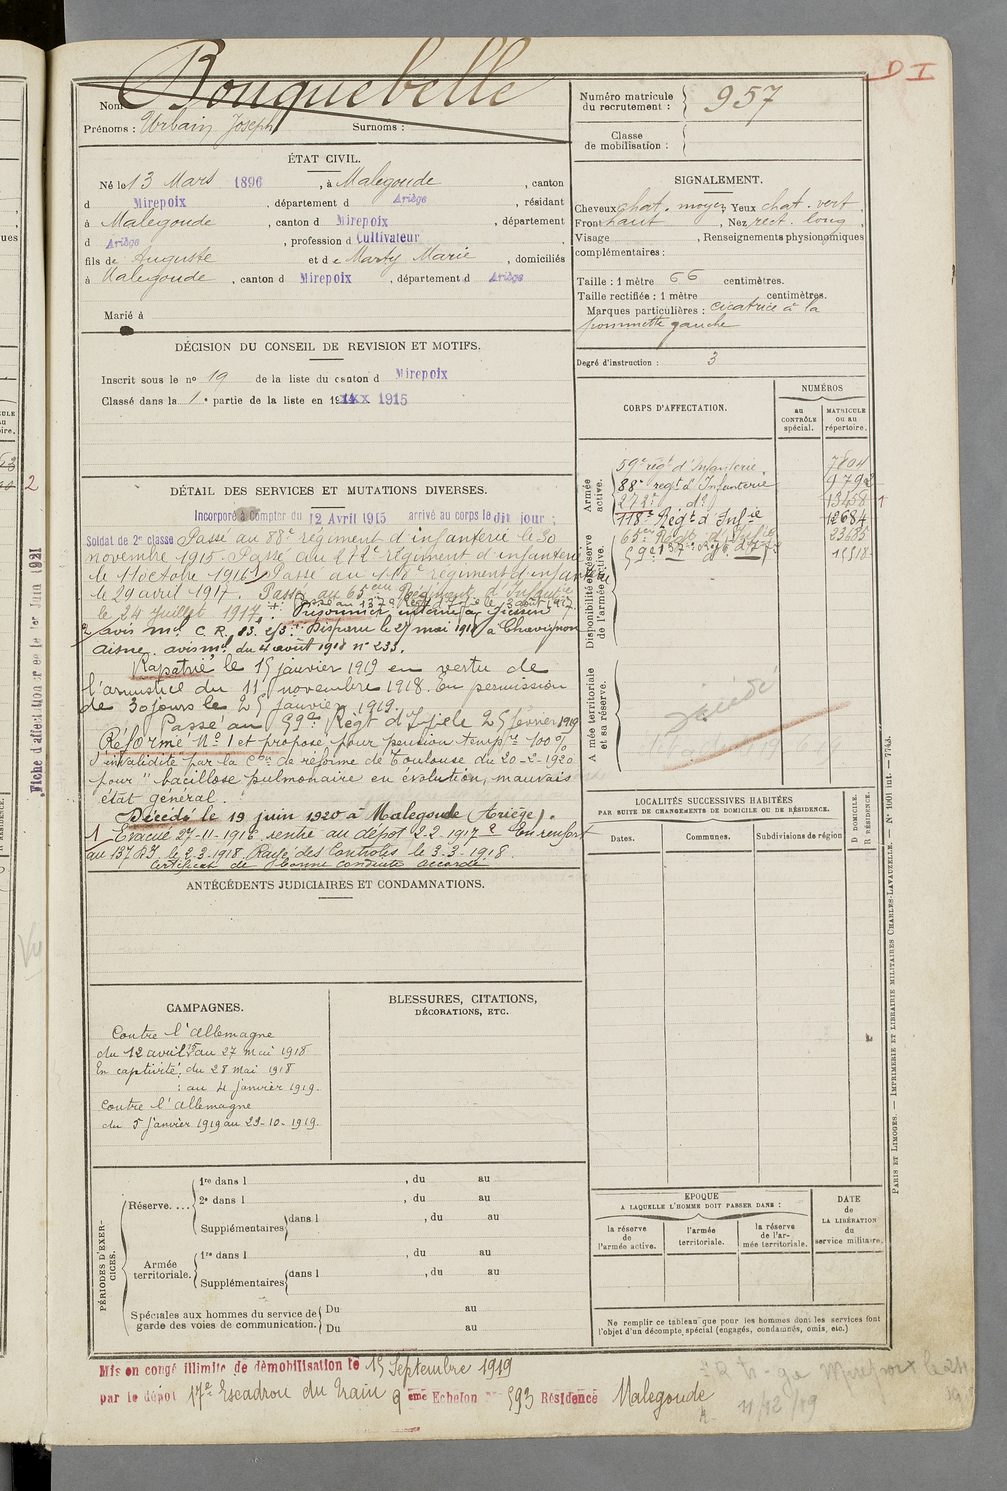 D I
Nom Bouquebelle
Prénoms : Urbain Joseph Surnoms :
Numéro matricule du recrutement : 957
Classe de mobilisation :
ÉTAT CIVIL.
Né le 13 Mars 1896, à Malegoude, canton
d Mirepoix, département d Ariège, résidant
à Malegoude, canton d Mirepoix, département
d Ariège, profession d Cultivateur
fils de Auguste et de Marty Marie, domiciliés
à Malegoude, canton d Mirepoix, département d Ariège
Marié à
SIGNALEMENT.
Cheveux chat. moyen, Yeux chat. vert,
Front haut, Nez rect. long,
Visage , Renseignements physionomiques
complémentaires :
Taille : 1 mètre 66 centimètres.
Taille rectifiée : 1 mètre centimètres.
Marques particulières : cicatrice à la
pommette gauche
Degré d'instruction : 3
DÉCISION DU CONSEIL DE REVISION ET MOTIFS.
Inscrit sous le no 19 de la liste du canton d Mirepoix
Classé dans la 1e partie de la liste en 1915
DÉTAIL DES SERVICES ET MUTATIONS DIVERSES.
Incorporé à compter du 12 Avril 1915 arrivé au corps le dit jour ;
Soldat de 2e classe Passé au 88e régiment d'infanterie le 30
novembre 1915. Passé au 272e régiment d'infanterie
le 11 octobre 1916. Passé au 118e régiment d'infanterie
le 29 avril 1917. Passé au 65eme Régiment d'Infantie
le 24 Juillet 1917. Passé au 137e Régt d'Ifie le 3 août 1917
Prisonnier, interné à Giessen
avis ml. C. R. Disparu le 27 mai 1918 à Chavignon
Aisne. avis ml. du 4 août 1918 n° 233.
Rapatrié le 15 janvier 1919 en vertu de
l'armistice du 11 novembre 1918. En permission
de 30 jours le 25 janvier 1919.
Passé au 59e Régt d'If le 25 février 1919
Réformé N° 1 et proposé pour pension tempre 100 %
d'invalidité par la Con de réforme de Toulouse du 20-2-1920
pour "bacillose pulmonaire en évolution, mauvais
état général.
Décédé le 19 juin 1920 à Malegoude (Ariège).
1 Evacué 27-11-1916 rentré au dépôt 2.2.1917 2 En renfort
au 137 RI le 2-3-1918. Rayé des Controles le 3-3-1918.
Certificat de bonne conduite accordé
CORPS D'AFFECTATION.
NUMÉROS
au CONTRÔLE spécial.
MATRICULE ou au répertoire.
Armée active.
59e régt d'Infanterie.
88e régt d'Infanterie
272e do
118e Régt d'Infie 12684
Disponibilité et réserve de l'armée active.
65eme Régt d'Infie
Armée territoriale et sa réserve.
Décédé
LOCALITÉS SUCCESSIVES HABITÉES
PAR SUITE DE CHANGEMENTS DE DOMICILE OU DE RÉSIDENCE.
Dates. Communes. Subdivisions de région
D DOMICILE.
R RÉSIDENCE.
ANTÉCÉDENTS JUDICIAIRES ET CONDAMNATIONS.
CAMPAGNES.
Contre l'Allemagne
du 12 avril 15 au 27 mai 1918
En captivité, du 28 mai 1918
: au 4 janvier 1919.
Contre l'Allemagne
du 5 Janvier 1919 au 29-10-1919.
BLESSURES, CITATIONS,
DÉCORATIONS, ETC.
PÉRIODES D'EXERCICES.
Réserve....
1re dans l , du au
2e dans l , du au
Supplémentaires dans l , du au
Armée territoriale.
1re dans l , du au
Supplémentaires dans l , du au
Spéciales aux hommes du service de garde des voies de communication.
Du au
Du au
EPOQUE
A LAQUELLE L'HOMME DOIT PASSER DANS :
la réserve de l'armée active.
l'armée territoriale.
la réserve de l'armée territoriale.
DATE de LA LIBÉRATION du service militaire.
Ne remplir ce tableau que pour les hommes dont les services font
l'objet d'un décompte spécial (engagés, condamnés, omis, etc.)
Mis en congé illimité de démobilisation le 15 Septembre 1919
par le dépôt 17e Escadron du Train 9 ème Echelon no 593 Résidence Malegoude
11/12/19
Fiche d'affectation créée le 1er Juin 1921
PARIS ET LIMOGES. — IMPRIMERIE ET LIBRAIRIE MILITAIRES CHARLES-LAVAUZELLE. — No 1001 int. — 7743.